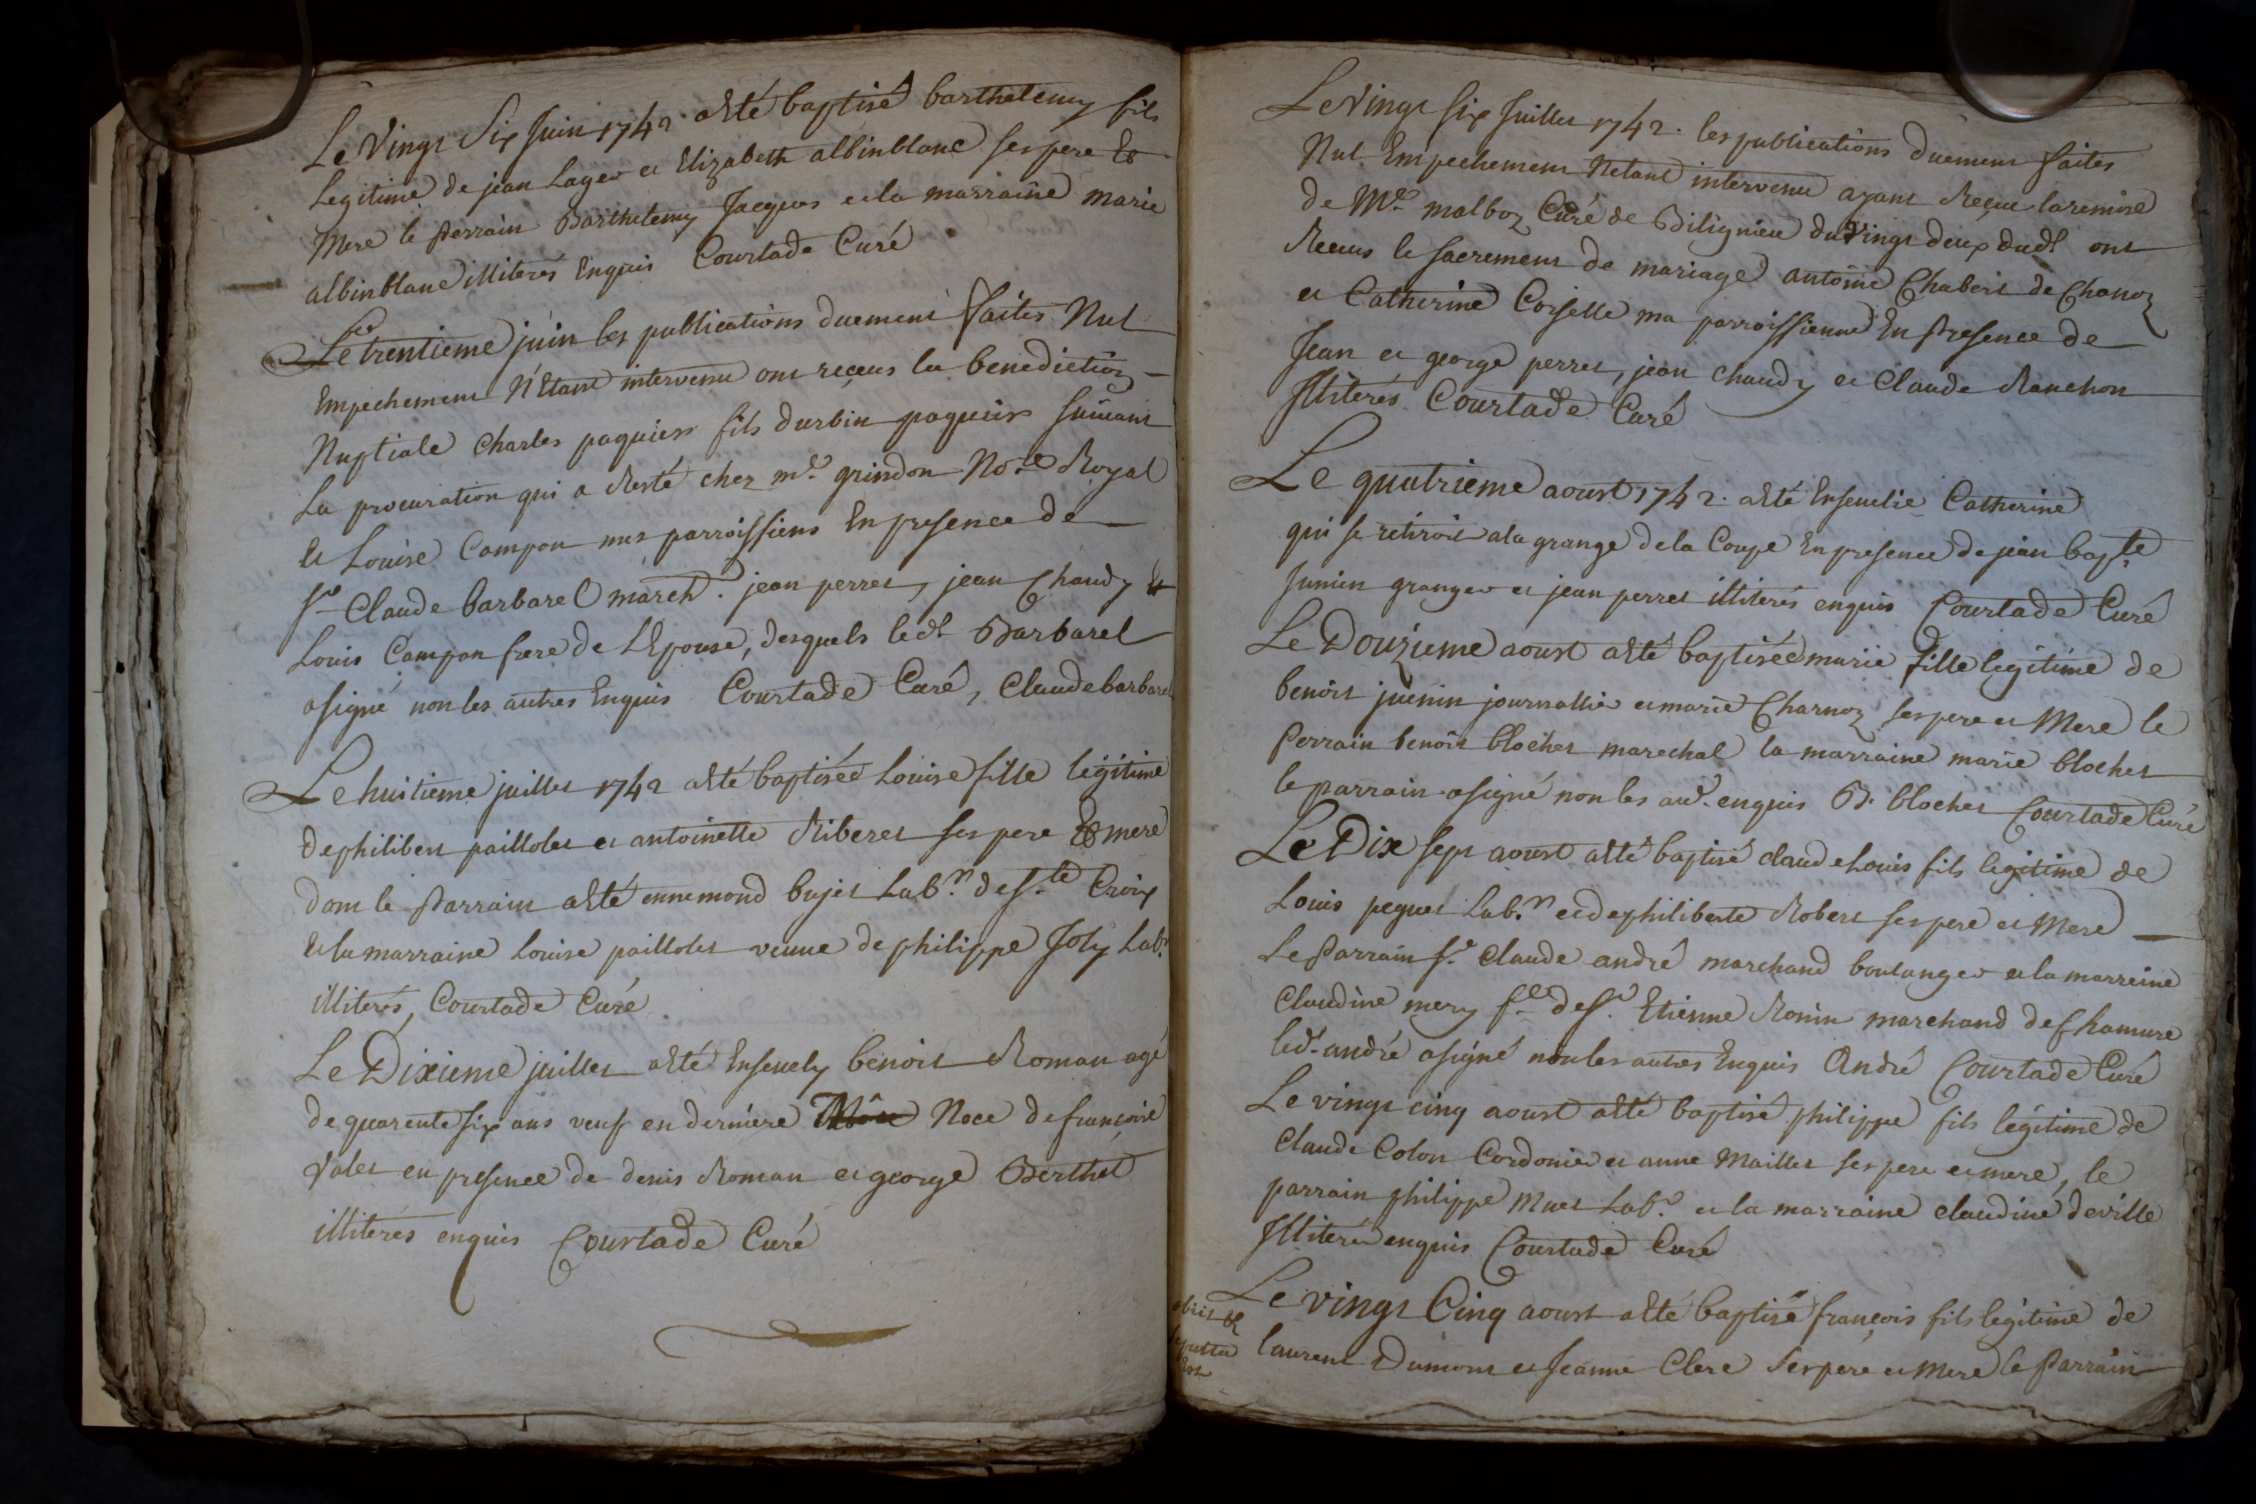 Le Vingt Six Juin 1742 a Eté baptisé barthelemy fils
Legitime de jean Lager et Elizabeth albinblanc ses pere Et
Mere le Perrain Barthelemy Jacques et la marraine marie
albinblanc illiterés Enquis Courtade Curé
Le trentieme juin les publications duement faites Nul
Empechement N'Etant intervenu ont reçeus la benediction
Nuptiale Charles paquier fils d'urbin paquier suivant
La procuration qui a Resté chez mr. grindon Nore Royal
Et Louise Campon mes parroissiens En presence de
sr Claude barbarel march. jean perret, jean Chaudy Et
Louis Campon frere de L'Epouse, desquels ledt Barbarel
a signé non les autres Enquis Courtade Curé, Claude barbarel
Le huitieme juillet 1742 a Eté baptisée Louise fille legitime
de philibert paillolet et antoinette Riberet ses pere Et mere
dont le Parrain a Eté ennemond bujet Labr. de Ste Croix
Et la marraine Louise paillolet veuve de philippe Joly Labr.
illiterés, Courtade Curé
Le Dixieme juillet a Eté Ensevely benoit Roman agé
de quarente six ans veuf en derniere Noce de françoise
Valet en presence de denis Roman et george Berthet
illiterés enquis Courtade Curé
Le Vingt six Juillet 1742. les publications duement faites
Nul Empechement Netant intervenu ayant Reçue la remise
de Mre malboz Curé de Bilignieu du Vingt deux dudt ont
Receus le sacrement de mariage antoine Chabert de Chanoz
et Catherine Corselle ma parroissienne En Presence de
Jean et george perret, jean chaudy et Claude Ranchon
Illiterés Courtade Curé
Le quatrieme aoust 1742. a Eté Ensevelie Catherine
qui se retiroit a la grange de la Coupe En presence de jean bapte
junien granger et jean perret illiterés enquis Courtade Curé
Le Douzieme aoust a Eté baptisée marie fille legitime de
benoit juenin journallier et marie Charnoz ses pere et Mere le
Perrain benoit blochet marechal la marraine marie blochet
le parrain a signé non les aud. enquis B. blochet Courtade Curé
Le Dix sept aoust a Eté baptisé claude Louis fils legitime de
Louis peguet Labr. et de philiberte Robert ses pere et Mere
Le Parrain sr. Claude andré marchand boulanger et la marreine
Claudine mery fe de sr. Etienne Ronin marchand de chamure
ledt. andré a signé non les autres Enquis André Courtade Curé
Le vingt cinq aoust a Eté baptisé philippe fils legitime de
Claude Colon Cordonier et anne Maillet ses pere et mere, le
parrain philippe Muet Labr. et la marraine claudine deville
Illiterés enquis Courtade Curé
Le vingt Cinq aoust a Eté baptisé françois fils legitime de
laurent Dumont et Jeanne Clere Ses pere et Mere le Parrain
obiit et